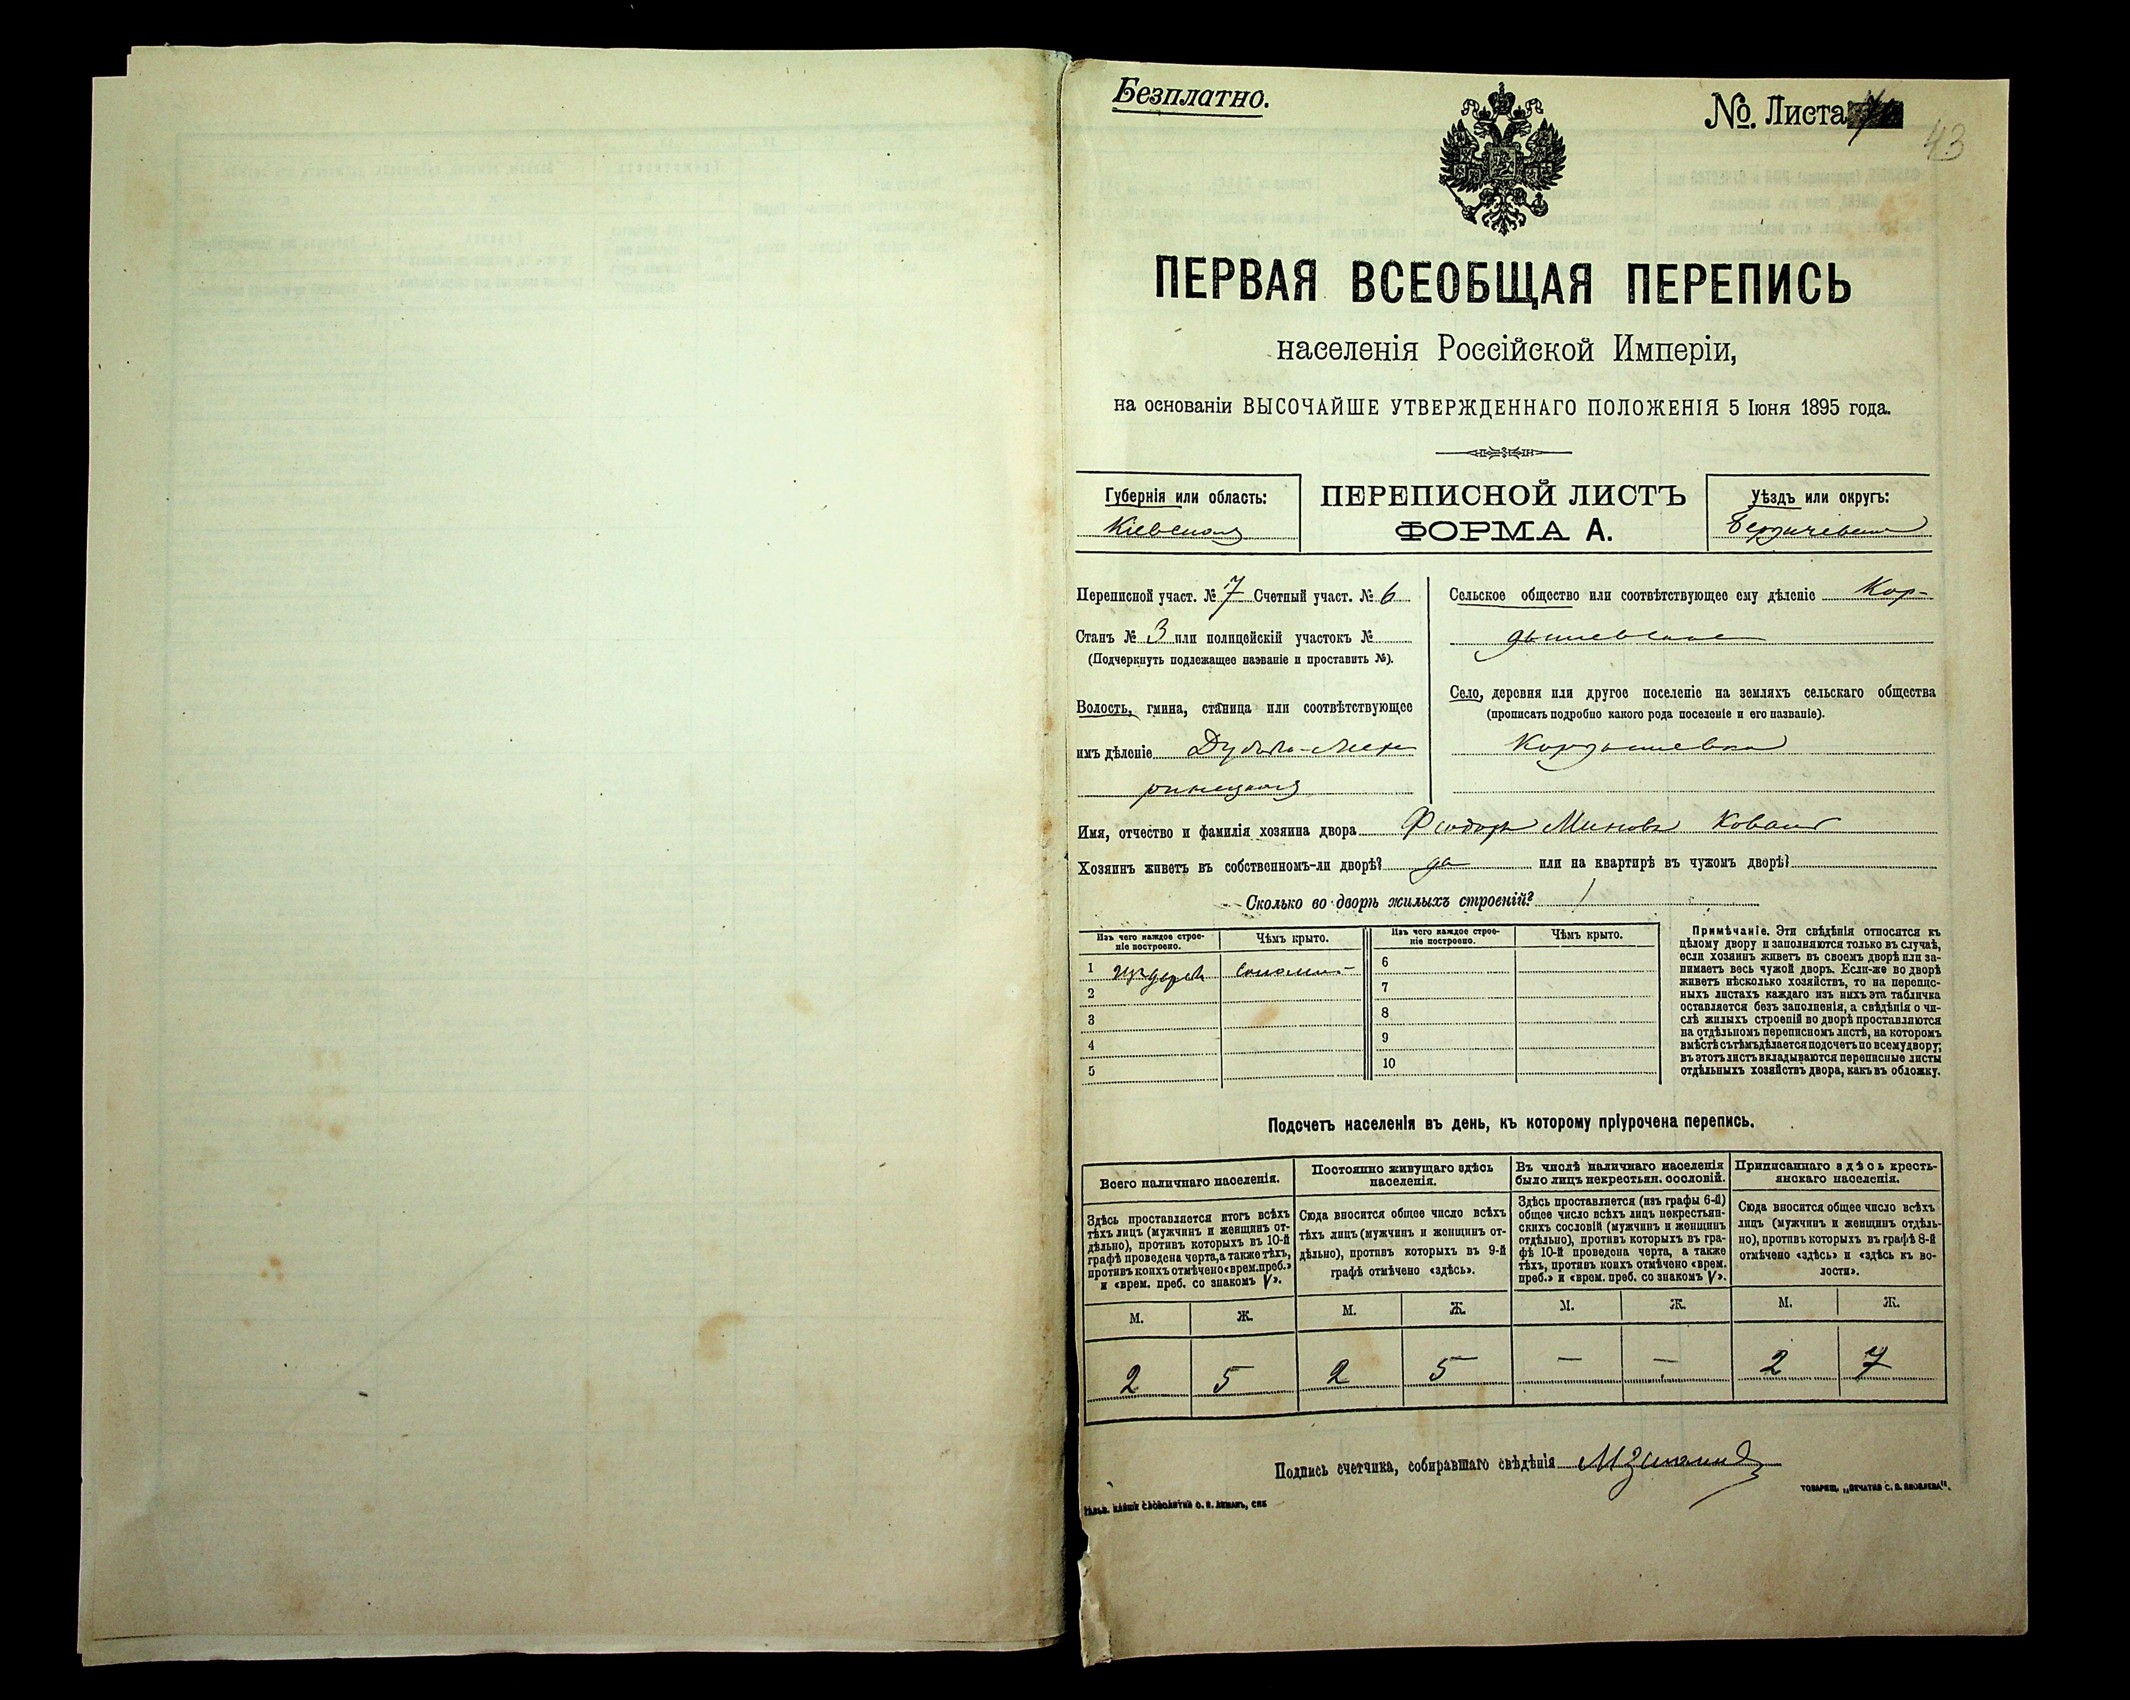 Безплатно.
№. Листа
43
ПЕРВАЯ ВСЕОБЩАЯ ПЕРЕПИСЬ
населенія Россійской Имперіи,
на основаніи ВЫСОЧАЙШЕ УТВЕРЖДЕННАГО ПОЛОЖЕНІЯ 5 Іюня 1895 года.
Губернія или область:
Кіевская
ПЕРЕПИСНОЙ ЛИСТЪ
ФОРМА А.
Уѣздъ или округъ:
Бердичевскій
Переписной участ. № 7 Счетный участ. № 6
Станъ № 3 или полицейскій участокъ №
(Подчеркнуть подлежащее названіе и проставить №).
Волость, гмина, станица или соотвѣтствующее
имъ дѣленіе
Сельское общество или соотвѣтствующее ему дѣленіе Кор-
дышевское
Село, деревня или другое поселеніе на земляхъ сельскаго общества
(прописать подробно какого рода поселеніе и его названіе).
Кордышевка
Имя, отчество и фамилія хозяина двора Феодоръ Коваль
Хозяинъ живетъ въ собственномъ-ли дворѣ? да или на квартирѣ въ чужомъ дворѣ?
Сколько во дворѣ жилыхъ строеній? 1
Изъ чего каждое строе-
ніе построено.
Чѣмъ крыто.
Изъ чего каждое строе-
ніе построено.
Чѣмъ крыто.
1 изъ дерева соломою
2
3
4
5
6
7
8
9
10
Примѣчаніе. Эти свѣдѣнія относятся къ
цѣлому двору и заполняются только въ случаѣ,
если хозяинъ живетъ въ своемъ дворѣ или за-
нимаетъ весь чужой дворъ. Если-же во дворѣ
живетъ нѣсколько хозяйствъ, то на перепис-
ныхъ листахъ каждаго изъ нихъ эта табличка
оставляется безъ заполненія, а свѣдѣнія о чи-
слѣ жилыхъ строеній во дворѣ проставляются
на отдѣльномъ переписномъ листѣ, на которомъ
вмѣстѣ съ тѣмъ дѣлается подсчетъ по всему двору;
въ этотъ листъ вкладываются переписные листы
отдѣльныхъ хозяйствъ двора, какъ въ обложку.
Подсчетъ населенія въ день, къ которому пріурочена перепись.
Всего наличнаго населенія.
Здѣсь проставляется итогъ всѣхъ
тѣхъ лицъ (мужчинъ и женщинъ от-
дѣльно), противъ которыхъ въ 10-й
графѣ проведена черта, а также тѣхъ,
противъ коихъ отмѣчено «врем. преб.»
и «врем. преб. со знакомъ V».
Постоянно живущаго здѣсь
населенія.
Сюда вносится общее число всѣхъ
тѣхъ лицъ (мужчинъ и женщинъ от-
дѣльно), противъ которыхъ въ 9-й
графѣ отмѣчено «здѣсь».
Въ числѣ наличнаго населенія
было лицъ некрестьян. сословій.
Здѣсь проставляется (изъ графы 6-й)
общее число всѣхъ лицъ некрестьян-
скихъ сословій (мужчинъ и женщинъ
отдѣльно), противъ которыхъ въ гра-
фѣ 10-й проведена черта, а также
тѣхъ, противъ коихъ отмѣчено «врем.
преб.» и «врем. преб. со знакомъ V».
Приписаннаго здѣсь кресть-
янскаго населенія.
Сюда вносится общее число всѣхъ
лицъ (мужчинъ и женщинъ отдѣль-
но), противъ которыхъ въ графѣ 8-й
отмѣчено «здѣсь» и «здѣсь къ во-
лости».
М. Ж. М. Ж. М. Ж. М. Ж.
2 5 2 5 — — 2 7
Подпись счетчика, собиравшаго свѣдѣнія
ТОВАРИЩ. „ПЕЧАТНЯ С. П. ЯКОВЛЕВА".